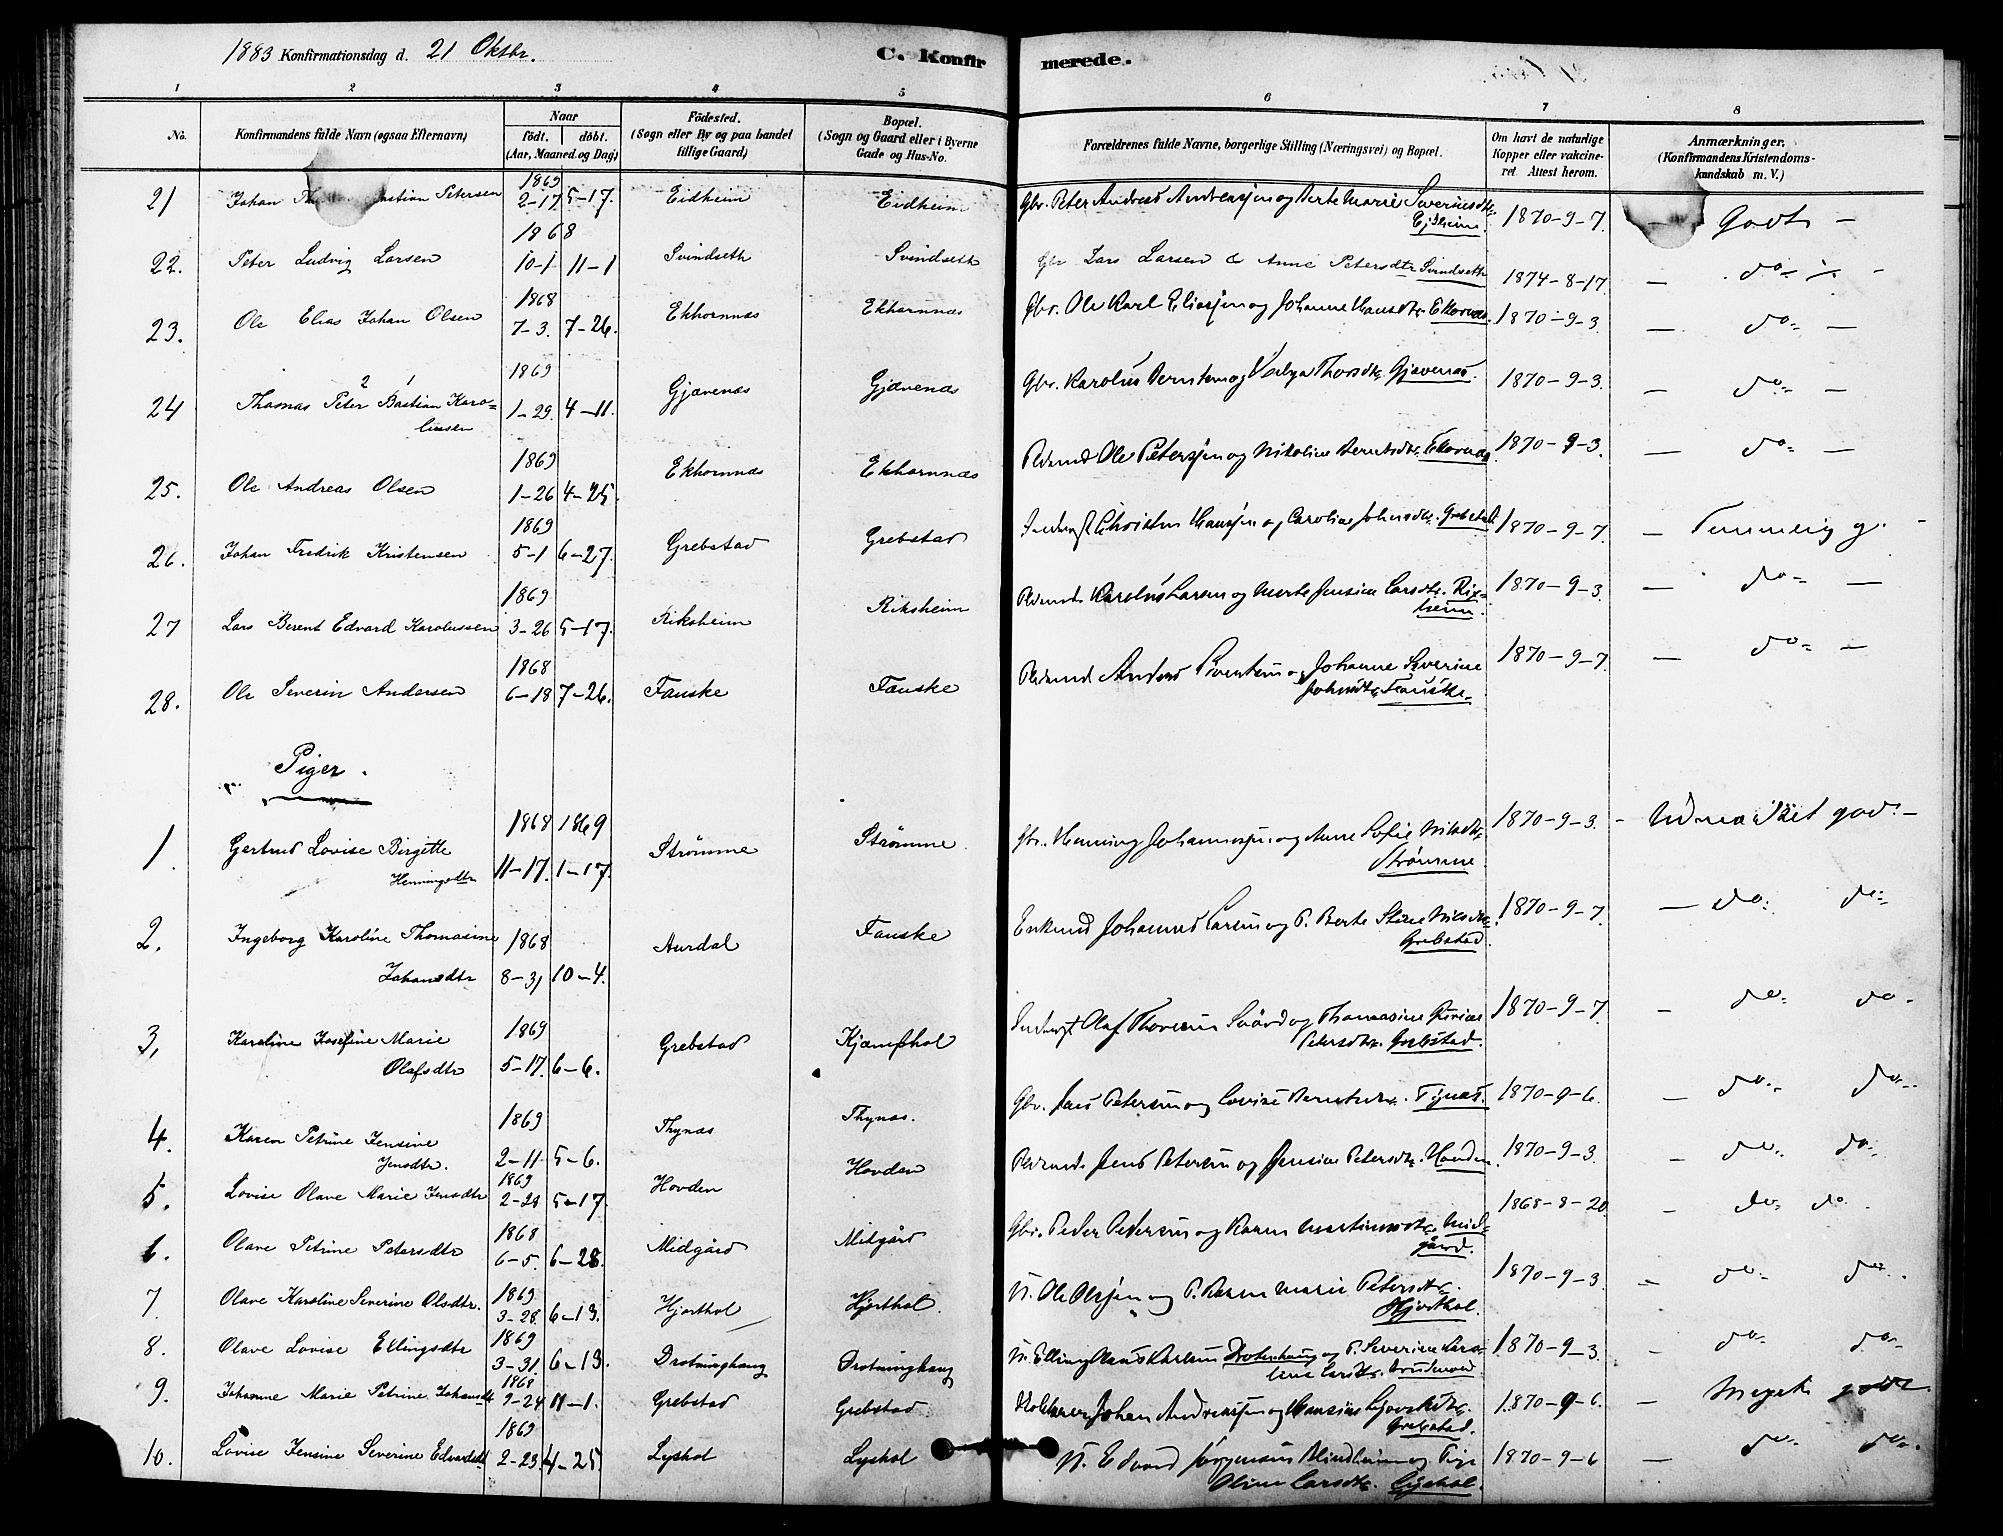 1883 Konfirmationsdag d. 21 Oktbr.
C. Konfirmerede.
1 2 3 4 5 6 7 8
No. Konfirmandens fulde Navn (ogsaa Efternavn)
Naar födt. döbt. (Aar, Maaned og Dag)
Födested. (Sogn eller By og paa Landet tillige Gaard)
Bopæl. (Sogn og Gaard eller i Byerne Gade og Hus-No.
Forældrenes fulde Navne, borgerlige Stilling (Næringsvei) og Bopæl.
Om havt de naturlige Kopper eller vakcineret. Attest herom.
Anmærkninger. (Konfirmandens Kristendomskundskab m. V.)
21 Johan Petersen 1869 2-17 5-17. Eidheim Eidheim Gbr. Peter Andreas Andreassen og Berte Marie Severinsdtr. Ejdheim. 1870-9-7. Godt -
22. Peter Ludvig Larsen 1868 10-1 11-1 Svindseth Svindseth Gbr Lars Larsen & Anne Petersdtr Svindseth 1874-8-17. - do -
23. Ole Elias Johan Olsen 1868 7-3. 7-26. Ekhornnæs Ekhornnæs Gbr. Ole Karl Eliassen og Johanne Hansdtr. Ekornæs. 1870-9-3. - do -
24 Thomas Peter Bastian Karolussen 1869 1-29. 4-11. Gjævenæs Gjævenæs Gbr. Karolus Berntsen og Thorsdtr. Gjævenæs. 1870-9-3. - do -
25. Ole Andreas Olsen 1869 1-26 4-25. Ekhornnæs Ekhornnæs Plsmd Ole Peterssen og Nikoline Berntsdtr. Ekornæs. 1870-9-3. - do -
26. Johan Fredrik Kristensen 1869 5-1 6-27. Grebstad Grebstad Inderst Christen Hanssen og Caroline Johnsdtr. Grebstad. 1870-9-7. - Temmelig g. -
27 Lars Berent Edvard Karolussen 1869 3-26 5-17. Riksheim Riksheim Plsmd Karolus Larsen og Marte Jensine Larsdtr. Rixheim. 1870-9-3. - do -
28. Ole Severin Andersen 1868 6-18 7-26. Fauske Fauske Plsmd Anders Berntsen og Johanne Severine Johnsdtr. Fauske. 1870-9-7. - do -
Piger.
1. Gertrud Lovise Birgitte Henningsdtr 1868 11-17. 1869 1-17. Strømme Strømme. Gbr. Henning Johannessen og Anne Sofie Nilsdtr. Strømme. 1870-9-3. - Udmærket god -
2. Ingeborg Karoline Thomasine Johansdtr 1868 8-31 10-4. Aurdal Fauske Enkemd Johannes Larsen og P. Berte Stine Nilsdtr. Grebstad. 1870-9-7. - do do
3, Karoline Josefine Marie Olafsdtr 1869 5-17. 6-6. Grebstad Kjæmphol Inderst Olaf Thoresen og Thomasine Petersdtr. Grebstad. 1870-9-7. - do do
4. Karen Petrine Jensine Jensdtr. 1869 2-11. 5-6. Thynæs Thynæs. Gbr. Jens Petersen og Lovise Berntsdtr. Tynæs. 1870-9-6. - do do
5. Lovise Olave Marie Jensdtr 1869 2-28 5-17. Hovden Hovden Plsmd Jens Petersen og Jensine Petersdtr. Hovden. 1870-9-3. - do do
6. Olave Petrine Petersdtr 1868 6-5. 6-28. Midgård Midgård Gbr. Peder Pedersen og Karen Martinusdtr. Midgård. 1868-8-20. - do do
7. Olave Karoline Severine Olsdtr. 1869 3-28. 6-13. Hjorthol Hjorthol. U. Ole Olsen og P. Karen Marie Petersdtr. Hjorthol. 1870-9-3. - do do
8. Olave Lovise Ellingsdtr 1869 3-31. 6-13. Drotninghaug Drotninghaug U. Elling Larsen og P. Severine Larsdtr. 1870-9-3. - do do
9. Johanne Marie Petrine Johansdtr 1868 9-24 11-1. Grebstad Grebstad Johan Andreassen og Grebstad. 1870-9-6. - Meget
10. Lovise Jensine Severine Edvardsdtr 1869 2-23. 4-25. Lyshol Lyshol U. Edvard Jørgensen Blindheim og Pige Oline Larsdtr. Lyshol. 1870-9-6 - do do